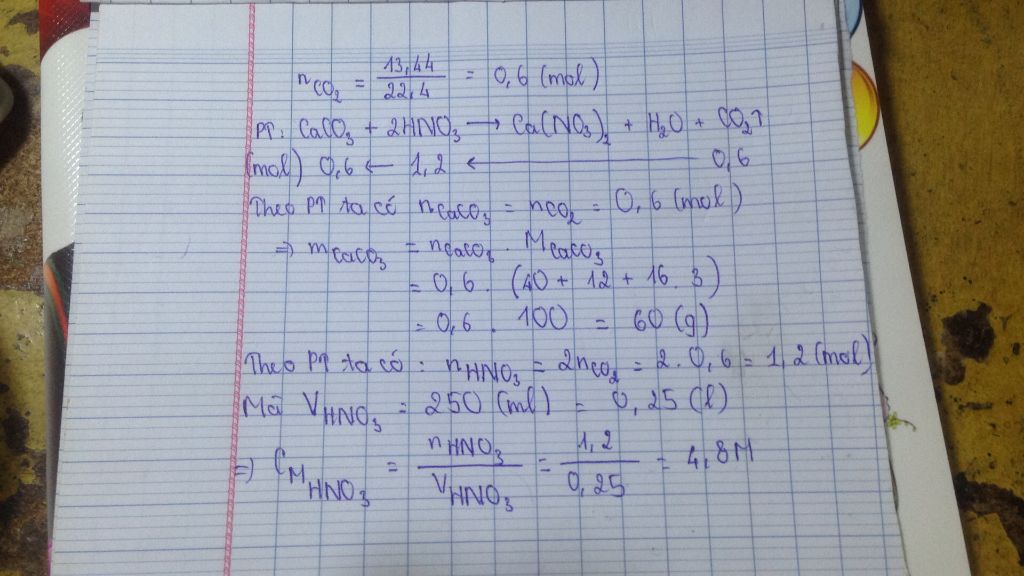 nCO₂ = 13,44/22,4 = 0,6 (mol)
PT: CaCO₃ + 2HNO₃ → Ca(NO₃)₂ + H₂O + CO₂↑
(mol) 0,6 ← 1,2 ← 0,6
Theo PT ta có nCaCO₃ = nCO₂ = 0,6 (mol)
⇒ mCaCO₃ = nCaCO₃ . MCaCO₃
= 0,6 . (40 + 12 + 16 . 3)
= 0,6 . 100 = 60 (g)
Theo PT ta có : nHNO₃ = 2nCO₂ = 2 . 0,6 = 1,2 (mol)
Mà VHNO₃ = 250 (ml) = 0,25 (l)
⇒ CMHNO₃ = nHNO₃/VHNO₃ = 1,2/0,25 = 4,8M